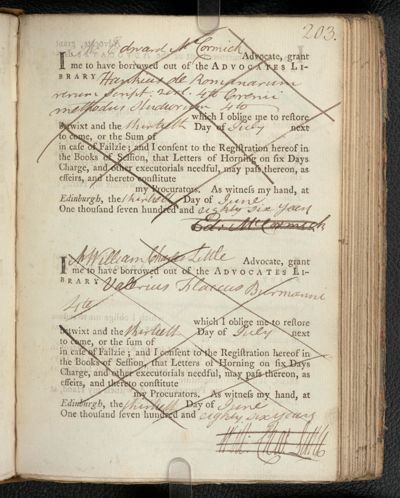 203.
I Mr Edward McCormick Advocate, grant
me to have borrowed out of the ADVOCATES LI-
BRARY Hankius de Romanarum
rerum Script. 2 vol. 4to Crenii
methodus studiorum 4to
which I oblige me to restore
betwixt and the thirtieth Day of July next
to come, or the Sum of
in case of Failzie; and I consent to the Registration hereof in
the Books of Session, that Letters of Horning on six Days
Charge, and other executorials needful, may pass thereon, as
effeirs, and thereto constitute
my Procurators. As witness my hand, at
Edinburgh, the thirtieth Day of June
One thousand seven hundred and eighty six years
Edw. McCormick
I Mr William Charles Little Advocate, grant
me to have borrowed out of the ADVOCATES LI-
BRARY Valerius Flaccus Burmanni
4to
which I oblige me to restore
betwixt and the thirtieth Day of July next
to come, or the sum of
in case of Failzie; and I consent to the Registration hereof in
the Books of Session, that Letters of Horning on six Days
Charge, and other executorials needful, may pass thereon, as
effeirs, and thereto constitute
my Procurators. As witness my hand, at
Edinburgh, the thirtieth Day of June
One thousand seven hundred and eighty six years